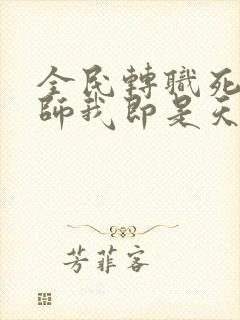 全民轉職死
師我即是天
芳菲客